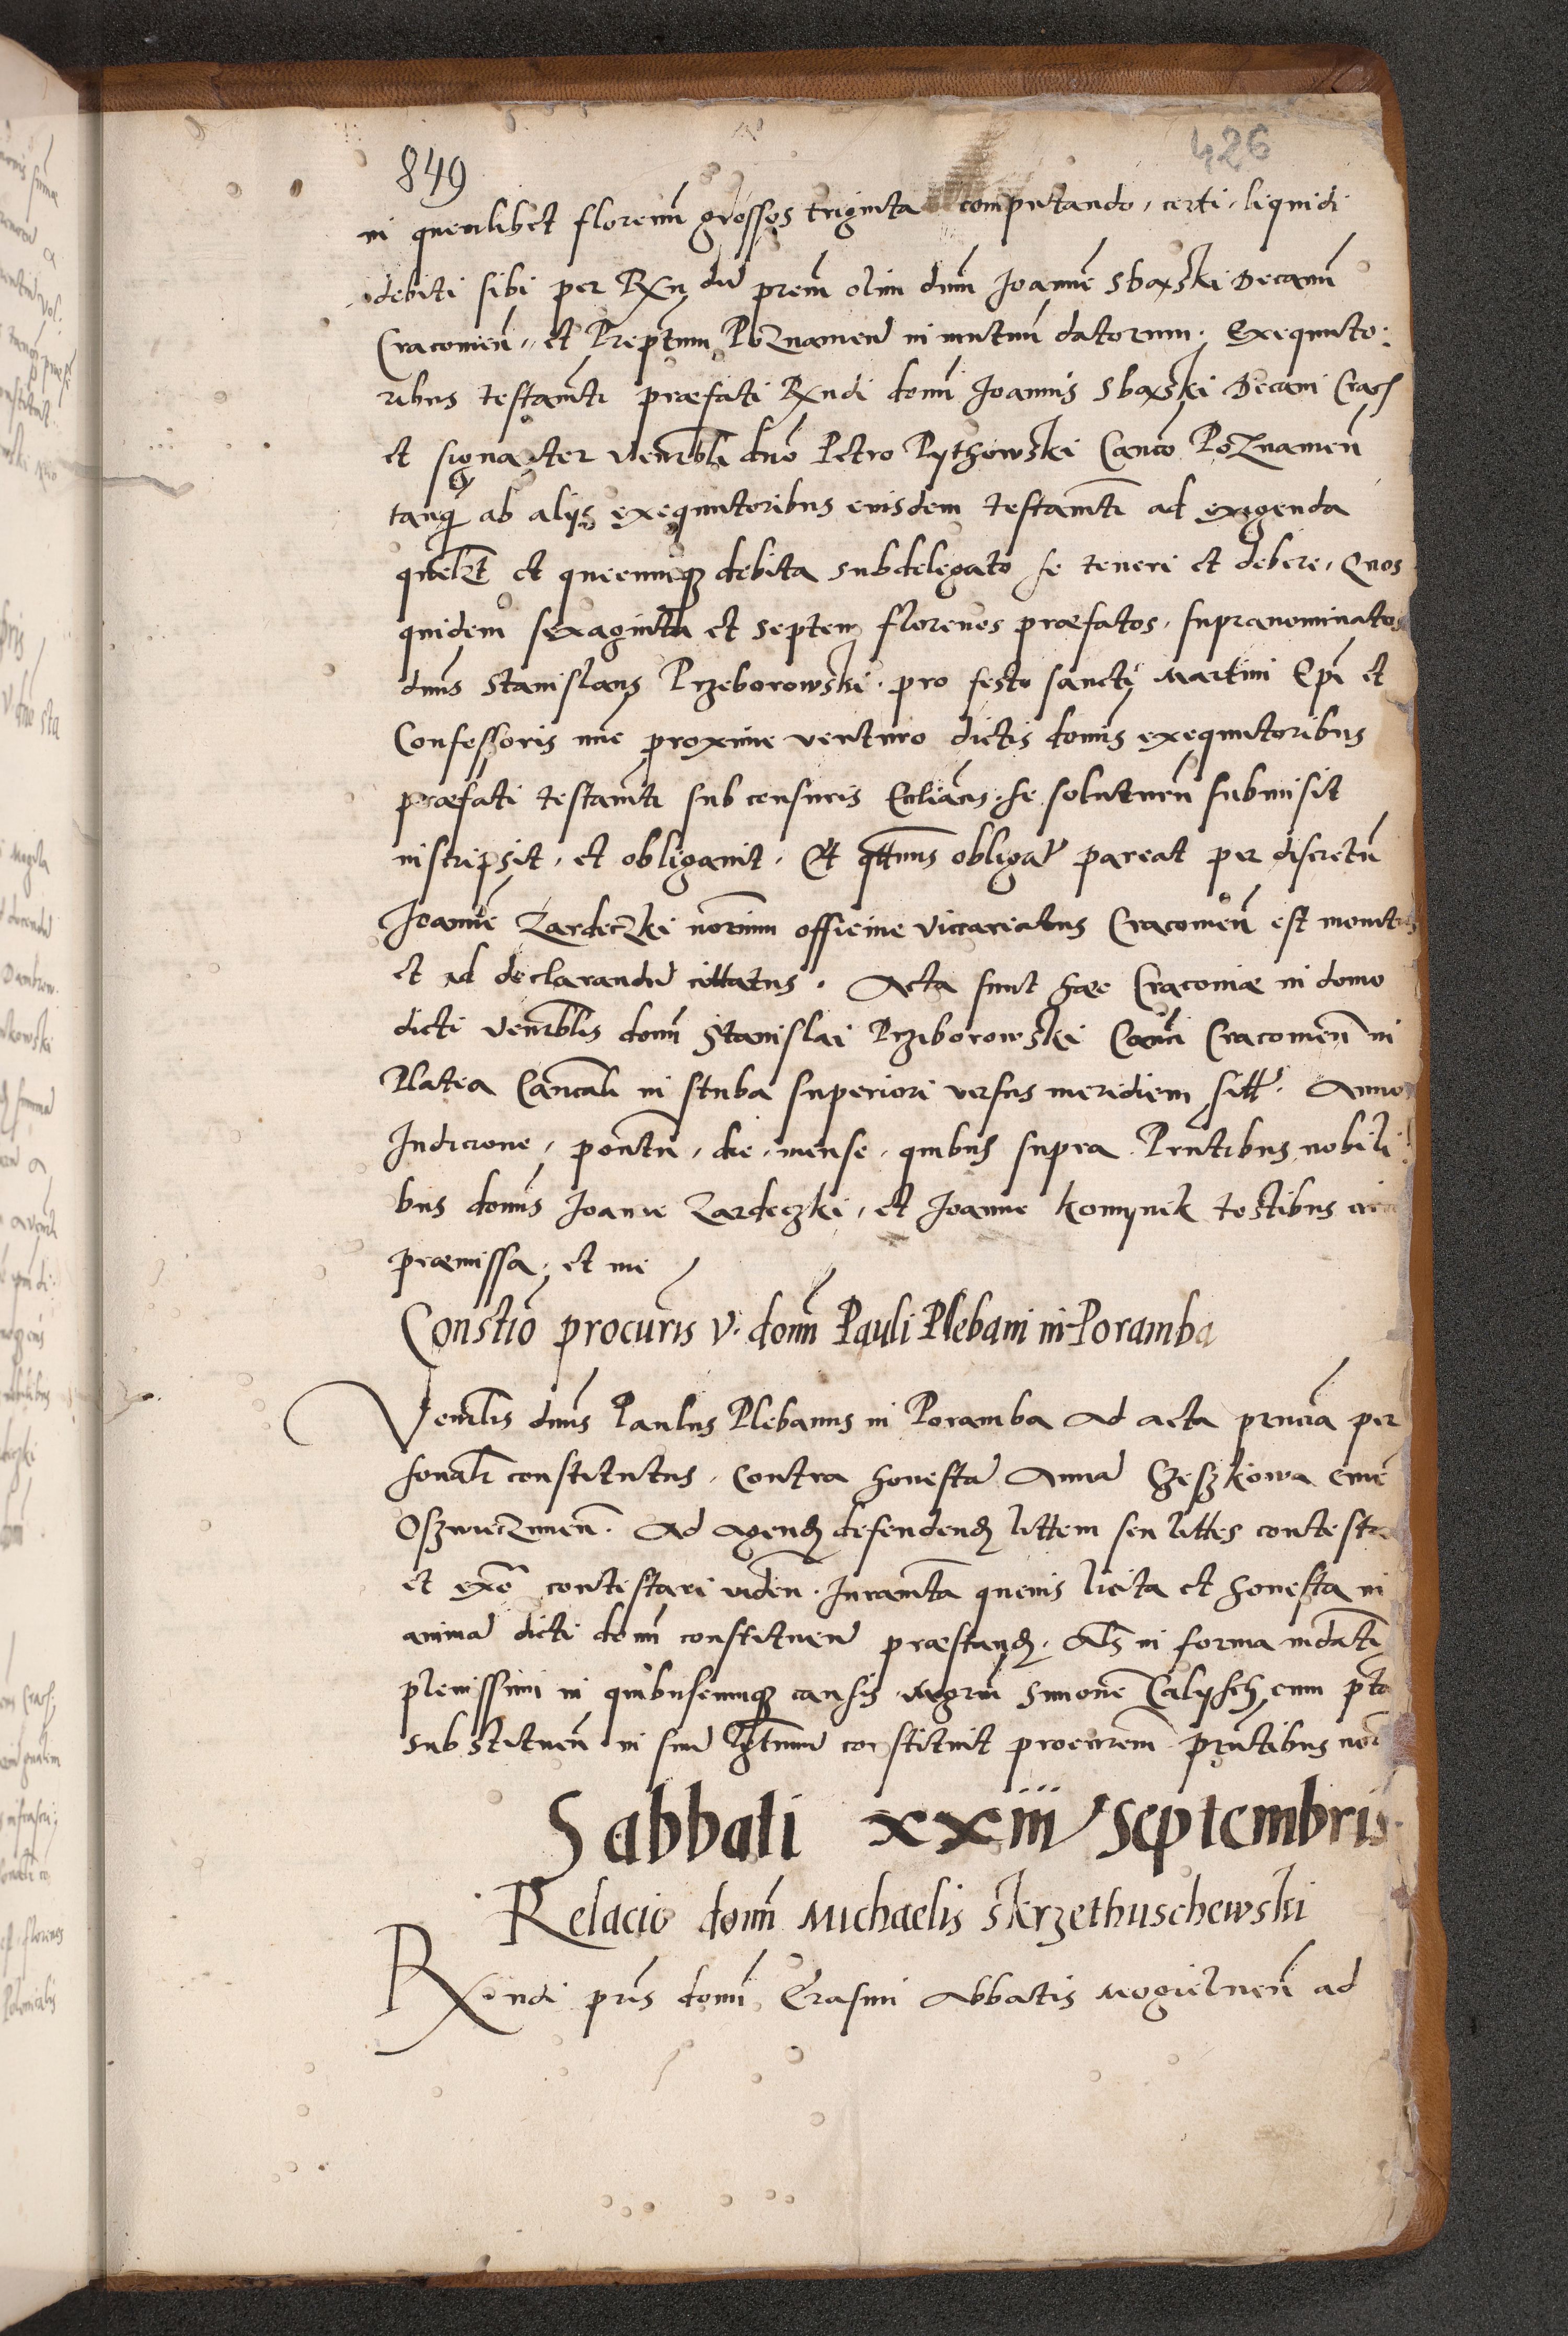 849
426
in quemlibet florenum grossos triginta computando, certi, liquidi
debiti sibi per Rxndū prēm olim dnm Joannē Sbaxski Decanū
Cracovień, et Preptum Poznanień in mutuū datorum. Exequuto:
ribus testamti præfati Rxndi domī Joannis Sbaxski Decani Crac
et signanter Venerbli dno Petro Pythowski Canco Poznanień
tanq̄ ab alijs exequutoribus eiusdem testamti ad exigenda
quelibet et quecunq debita subdelegato se teneri et debere, Quos
quidem sexaginta et septem florenos præfatos, supranominatos
dnus Stanislaus Przeborowski pro festo sancti Martini Epi et
Confessoris nūc proxime venturo dictis domis exequutoribus
præfati testamti sub censuris Ecliācis se soluturū submisit
inscripsit, et obligavit. Et qttenus obligat pareat per discretū
Joannē Zardeczki noriūm officiūe Viccariatus Cracovień est monitus
et ad declarandū cittatus. Acta sunt hæc Cracoviæ in domo
dicti Venerblis domī Stanislai Prziborowski Canci Cracovień in
Platea Cancali in stuba superiori versus meridiem sitt. Anno
Indicione, pontū, die, mense, quibus supra Pruntibus nobili
bus domis Joanne Zardeczki, et Joanne Komynik testibus circa
præmissa, et me
Constio procuris v. domī Pauli Plebani in Poramba
Venrlis dnus Paulus Plebanus in Poramba Ad acta prnciā per
sonalr constitutus, contra honestā Annā Czeszkowa civē
Oszwieczimeń. Ad agend defendend littem seu littes contesta
et exñe contestari vidend. Juramta quevis licita et honesta in
animā dicti domī constituen præstand. Als in forma mdati
plenissimi in quibuscunq causis Mgrm Simonē Calysch cum ptā
substituen in suū lgtimū constituit procurēm pruntibus nor
Sabbati xxiii Septembris
Relacio domī Michaelis Skrzethuschewski
Rxndi pris domī Erasmi Abbatis Mogilneń ad